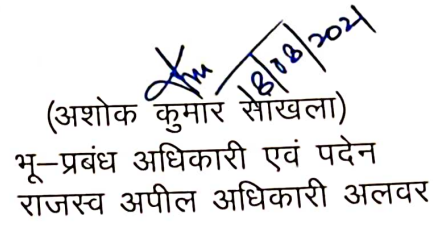 18/08/2021
(अशोक कुमार सांखला)
भू-प्रबंध अधिकारी एवं पदेन
राजस्व अपील अधिकारी अलवर